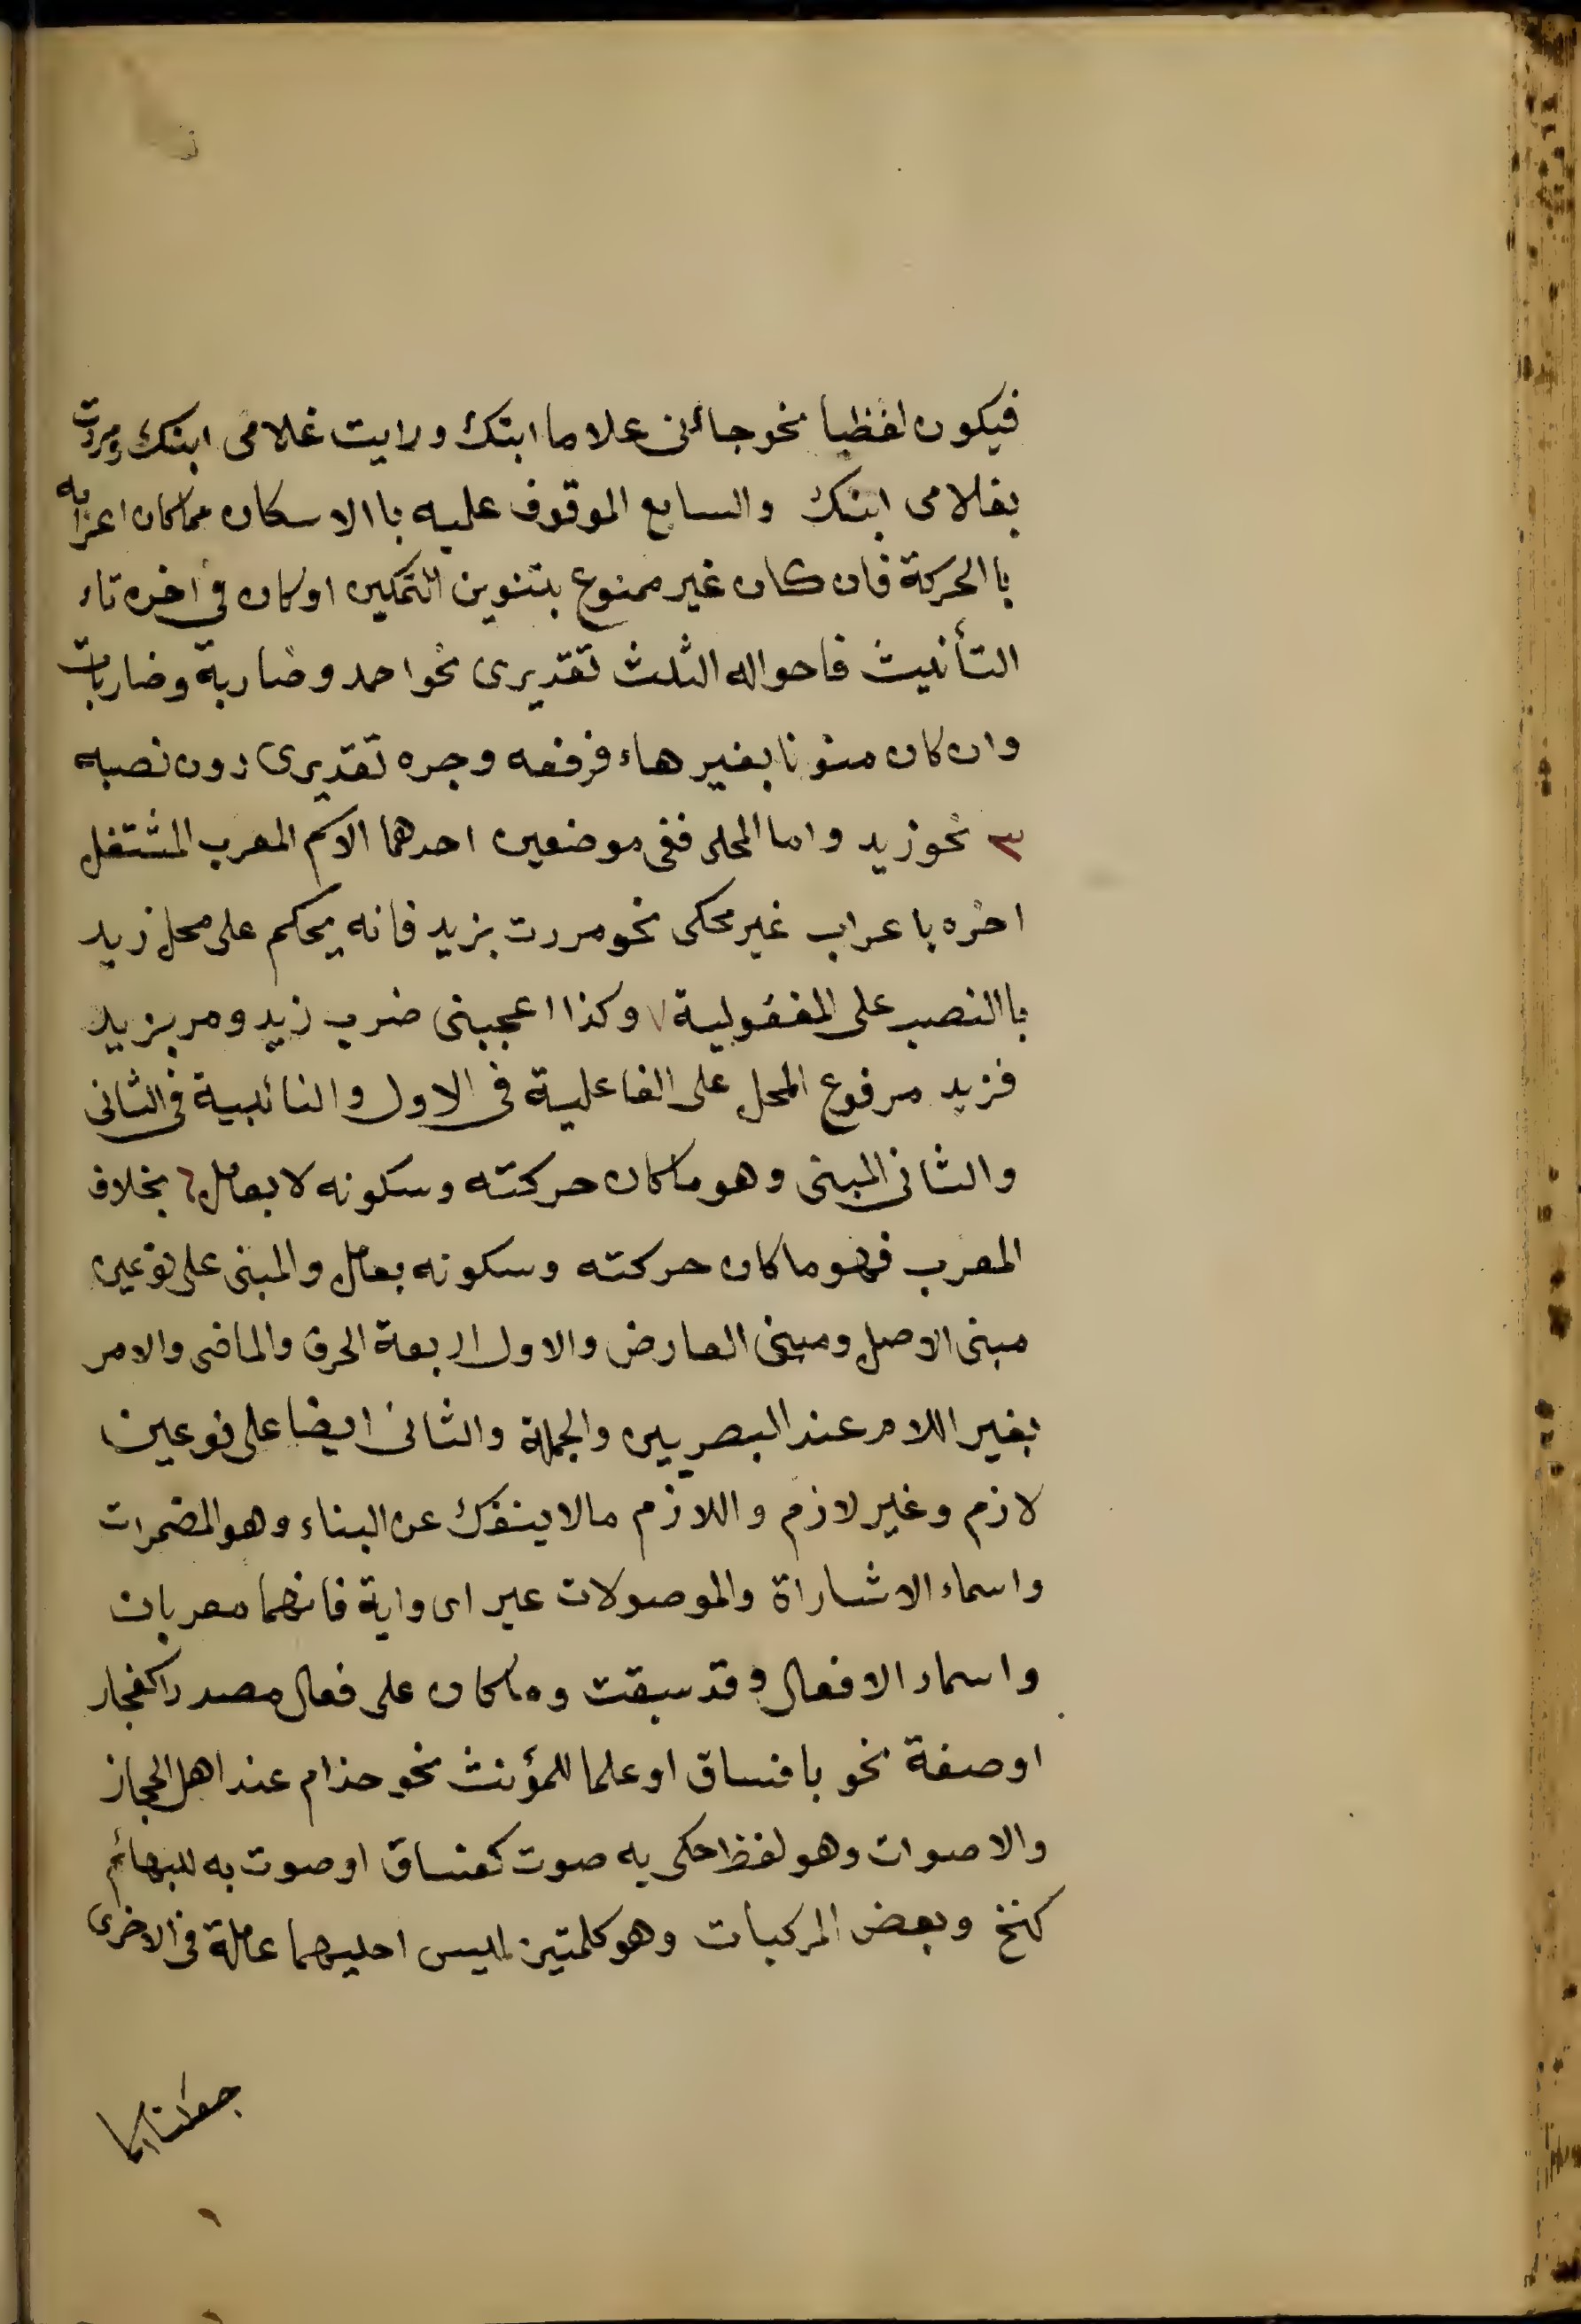 فيكون لفظيا نحو جائنى علاما ابنك ورايت غلامى ابنك ومررت
بغلامى ابنك والسابع الموقوف عليه باالاسكان مما كان اعرابه
باالحركة فان كان غير ممنوع بتنوين التمكين او كان فى اخره تاء
التأنيث فاحواله الثلث تقديرى نحو احمد وضاربة وضاربات
وان كان منونا بغير هاء فرفعه وجره تقديرى دون نصبه
٣ نحو زيد واما المحلى ففى موضعين احدهما الاسم المعرب المشتغل
اخره باعراب غير محكى نحو مررت بزيد فانه يحكم على محل زيد
باالنصب على المفعولية ٧ وكذا اعجبنى ضرب زيد ومر بزيد
فزيد مرفوع المحل على الفاعلية فى الاول والنائبية فى الثانى
والثانى المبنى وهو ما كان حركته وسكونه لا بعامل بخلاف
المعرب فهو ما كان حركته وسكونه بعامل والمبنى على نوعين
مبنى الاصل ومبنى العارض والاول اربعة الحرف والماضى والامر
بغير اللام عند البصريين والجملة والثانى ايضا على نوعين
لازم وغير لازم واللازم مالا ينفك عن البناء وهو المضمرات
واسماء الاشاراة والموصولات غير اى واية فانهما معربان
واسماء الافعال وقد سبقت وما كان على فعال مصدرا كفجار
اوصفة نحو يا فساق او علما للمؤنث نحو حذام عند اهل الحجاز
والاصوات وهو لفظ حكى به صوت كغساق او صوت به للبهائم
كنخ وبعض المركبات وهو كلمتين ليس احديهما عاملة فى الاخرى